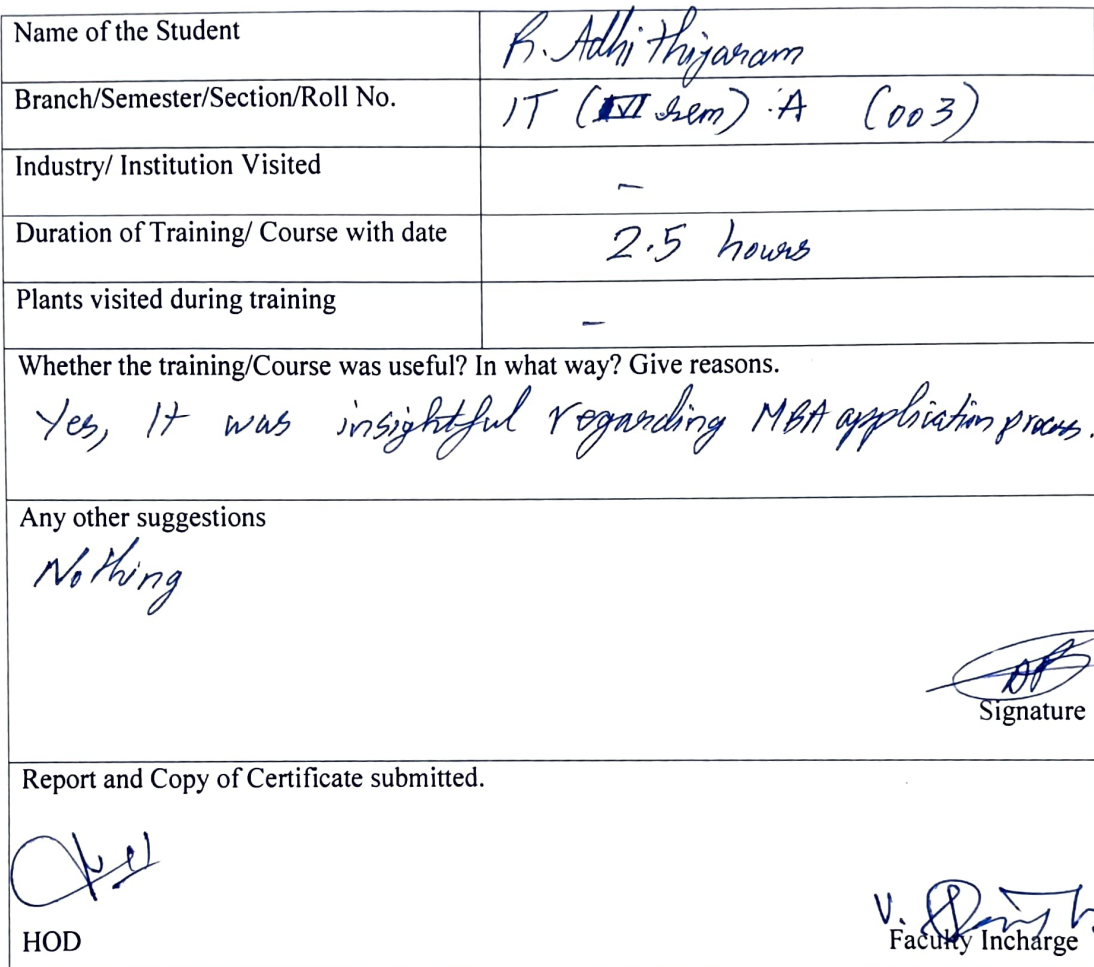 Name of the Student R. Adhithijaram
Branch/Semester/Section/Roll No. IT (VI sem) : A (003)
Industry/ Institution Visited –
Duration of Training/ Course with date 2.5 hours
Plants visited during training –
Whether the training/Course was useful? In what way? Give reasons.
Yes, It was insightful regarding MBA application process.
Any other suggestions
Nothing
Signature
Report and Copy of Certificate submitted.
V.
HOD Faculty Incharge